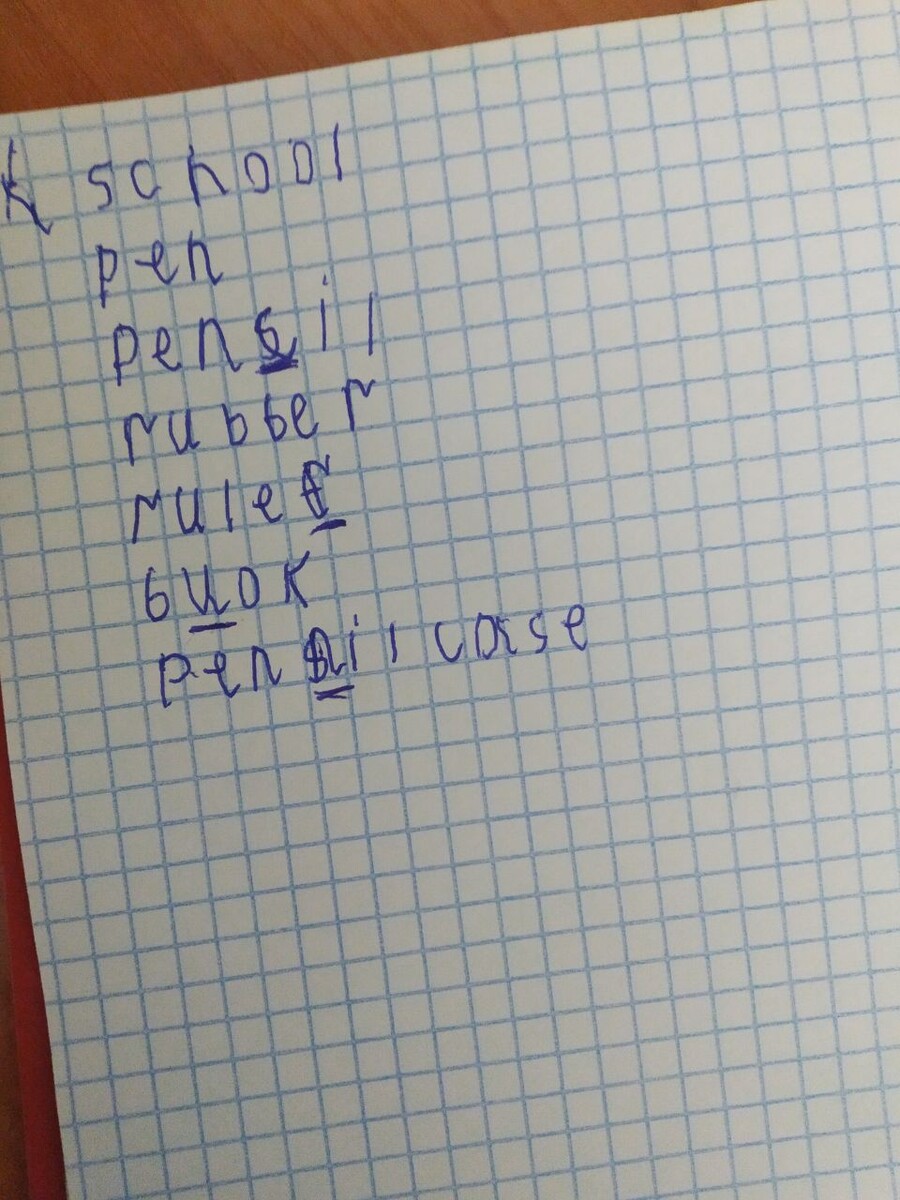 school
pen
pensil
rubber
ruler
buok
pensil case